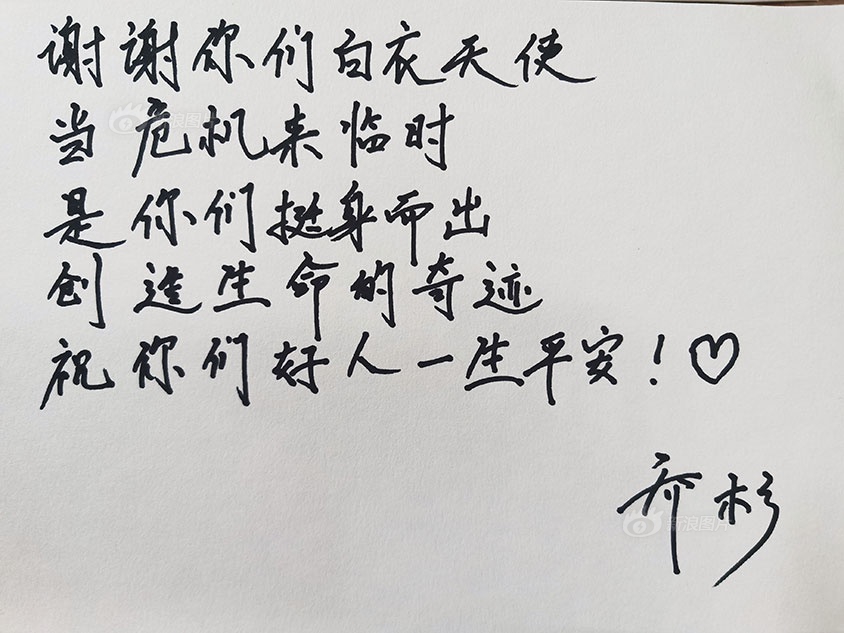 谢谢你们白衣天使
当危机来临时
是你们挺身而出
创造生命的奇迹
祝你们好人一生平安！♡
乔杉
新浪图片
新浪图片